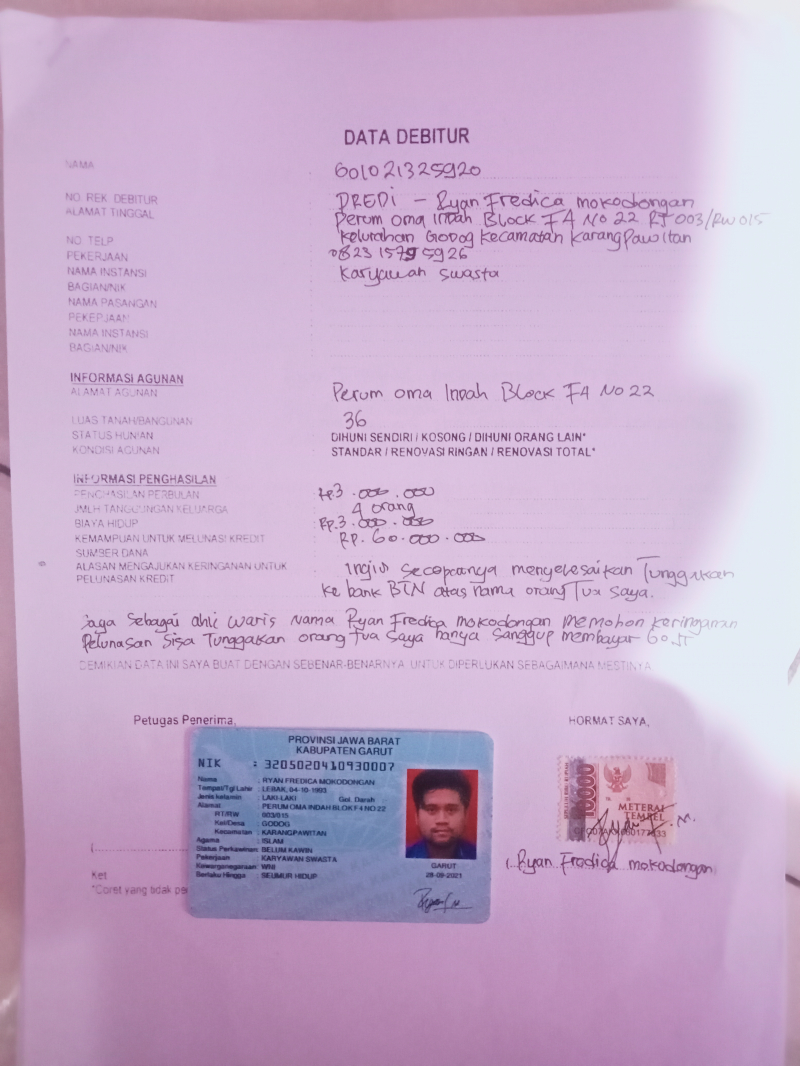 DATA DEBITUR
NAMA 601021325920
NO. REK. DEBITUR DREDI - Ryan Fredica mokodongan
ALAMAT TINGGAL Perum oma Indah Block F4 No 22 RT 003/RW 015
Kelurahan Godog Kecamatan Karangpawitan
NO. TELP
PEKERJAAN
NAMA INSTANSI Karyawan Swasta
BAGIAN/NIK
NAMA PASANGAN
PEKERJAAN
NAMA INSTANSI
BAGIAN/NIK
INFORMASI AGUNAN
ALAMAT AGUNAN Perum oma Indah Block F4 No 22
LUAS TANAH/BANGUNAN 36
STATUS HUNIAN DIHUNI SENDIRI / KOSONG / DIHUNI ORANG LAIN*
KONDISI AGUNAN STANDAR / RENOVASI RINGAN / RENOVASI TOTAL*
INFORMASI PENGHASILAN
PENGHASILAN PERBULAN Rp3.000.000
JMLH TANGGUNGAN KELUARGA 4 orang
BIAYA HIDUP Rp.3.000.000
KEMAMPUAN UNTUK MELUNASI KREDIT Rp. 60.000.000
SUMBER DANA
ALASAN MENGAJUKAN KERINGANAN UNTUK Ingin secepatnya menyelesaikan Tunggakan
PELUNASAN KREDIT Ke bank BTN atas nama orang Tua saya.
Saya sebagai ahli waris nama Ryan Fredica mokodongan memohon keringanan
Pelunasan sisa Tunggakan orang Tua saya hanya sanggup membayar 60 JT
DEMIKIAN DATA INI SAYA BUAT DENGAN SEBENAR-BENARNYA, UNTUK DIPERLUKAN SEBAGAIMANA MESTINYA.
Petugas Penerima, HORMAT SAYA,
PROVINSI JAWA BARAT
KABUPATEN GARUT
NIK : 3205020410930007
Nama : RYAN FREDICA MOKODONGAN
Tempat/Tgl Lahir : LEBAK, 04-10-1993
Jenis kelamin : LAKI-LAKI Gol. Darah
Alamat : PERUM OMA INDAH BLOK F4 NO 22
RT/RW : 003/015
Kel/Desa : GODOG
Kecamatan : KARANGPAWITAN
Agama : ISLAM
Status Perkawinan: BELUM KAWIN
Pekerjaan : KARYAWAN SWASTA
Kewarganegaraan: WNI
Berlaku Hingga : SEUMUR HIDUP
GARUT
28-09-2021
10000
METERAI
TEMPEL
(Ryan Fredica mokodongan
Ket
*Coret yang tidak